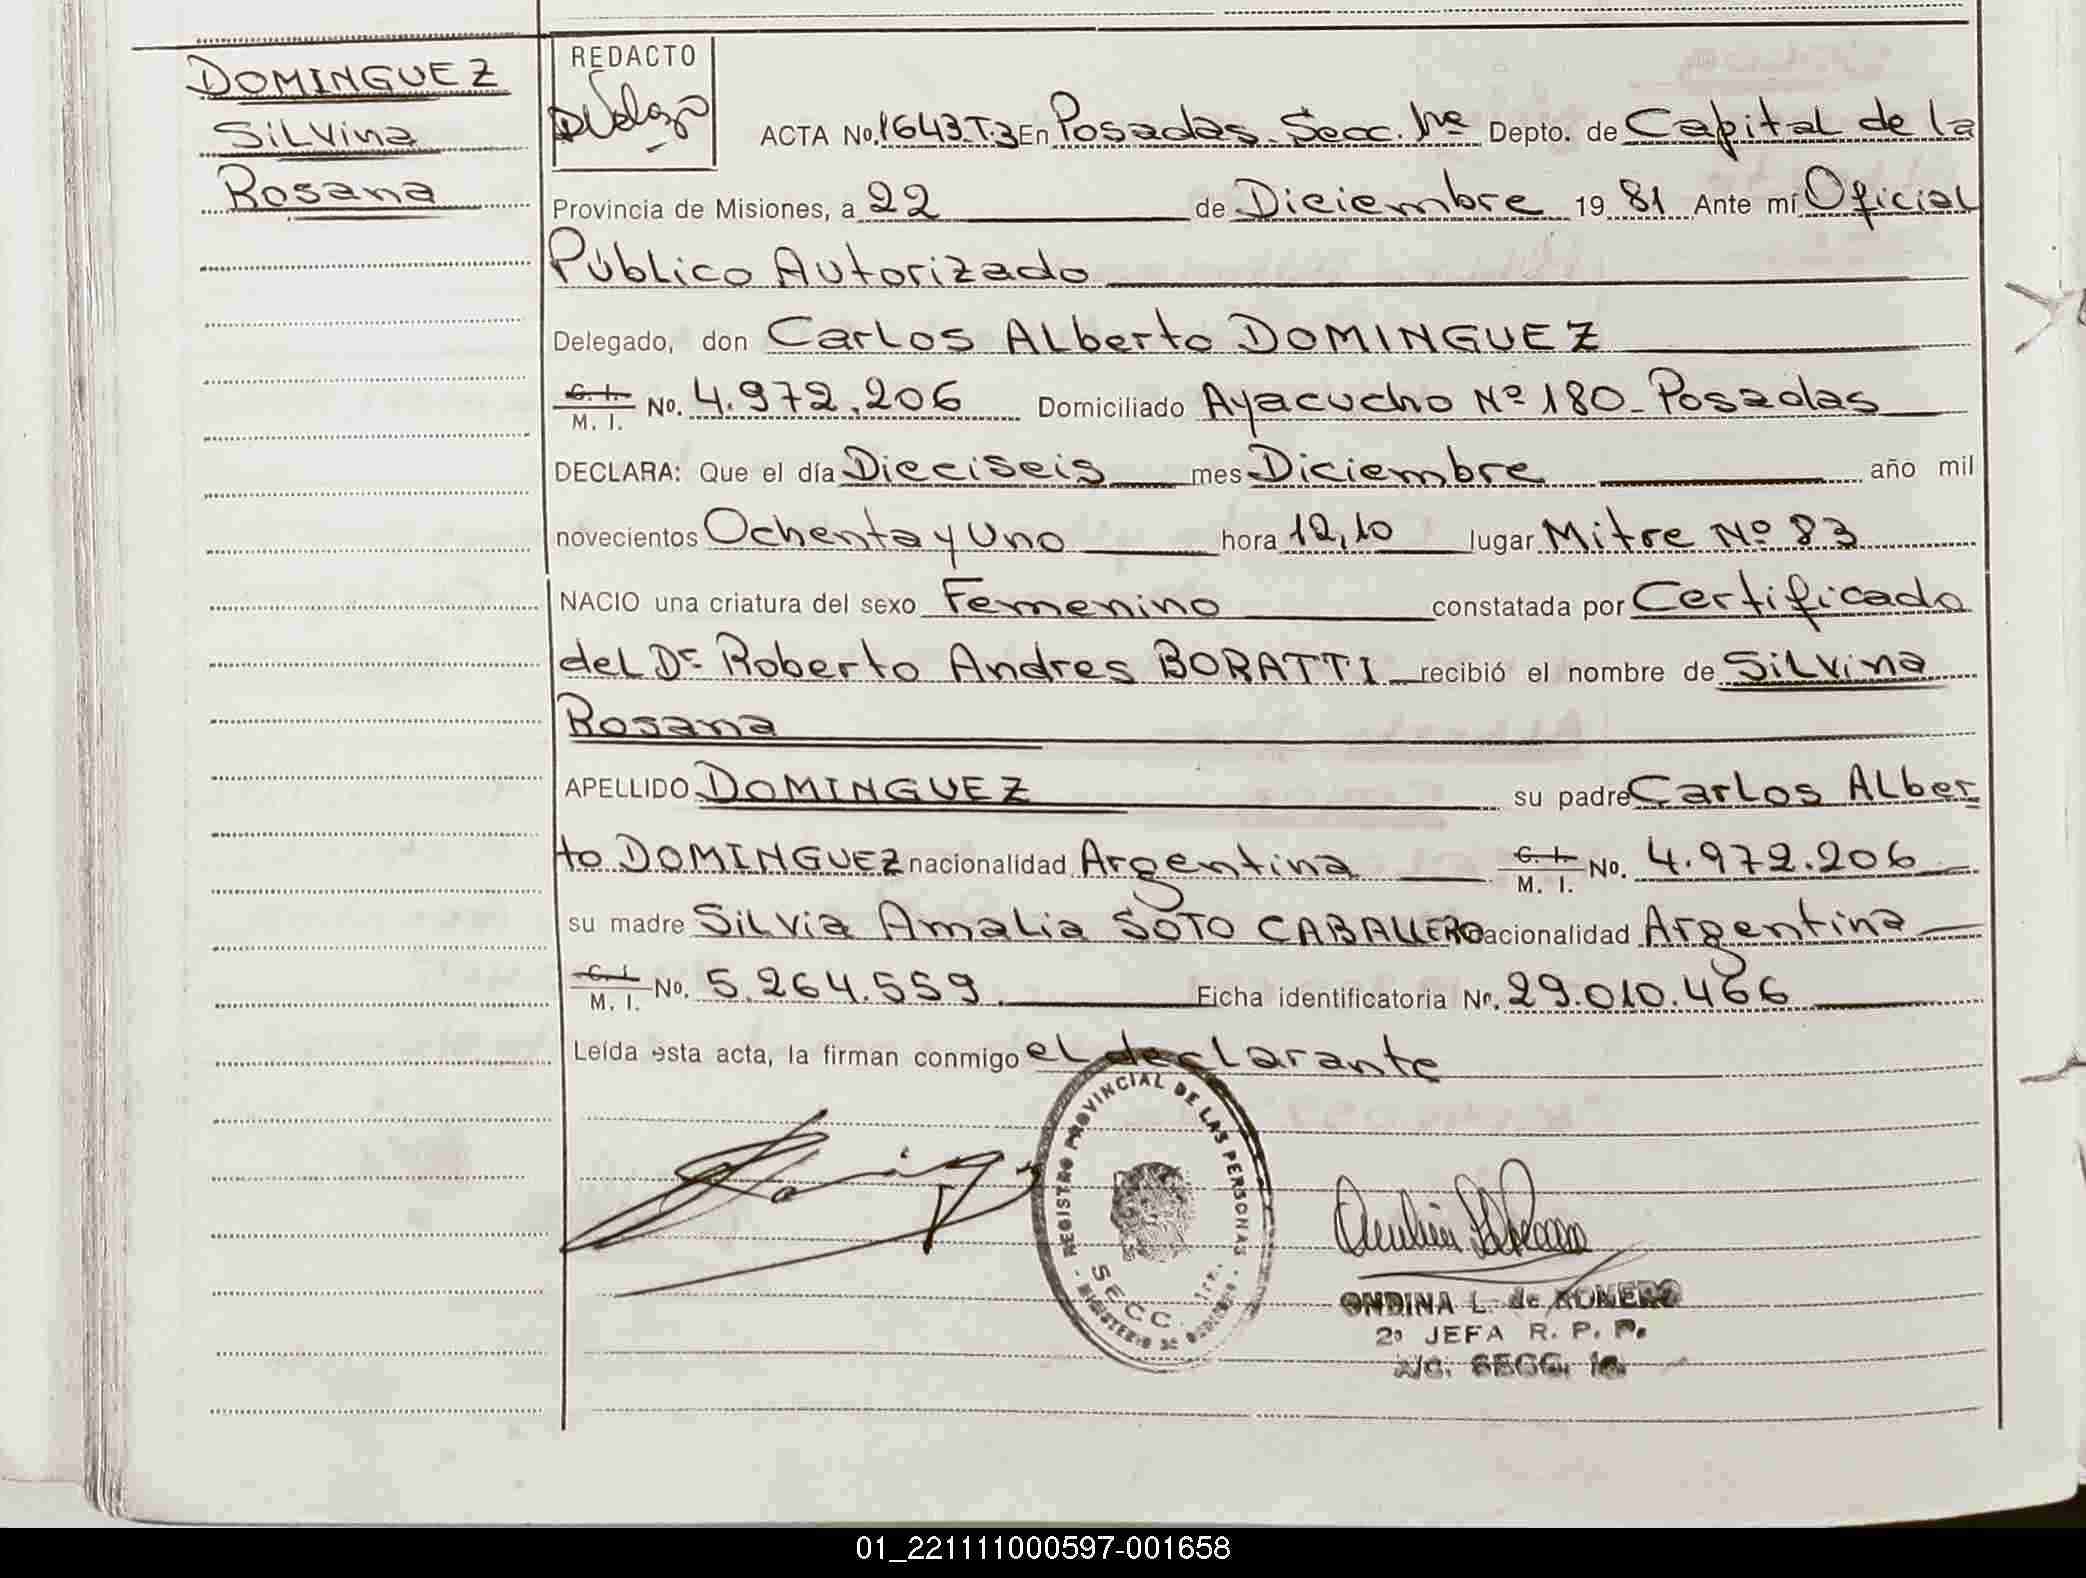 DOMINGUEZ
Silvina
Rosana
REDACTO
ACTA No. 1643.T.3 En Posadas. Secc. 1ra Depto. de Capital de la
Provincia de Misiones, a 22 de Diciembre 19 81 Ante mí Oficial
Público Autorizado
Delegado, don Carlos Alberto DOMINGUEZ
C. I.
M. I. No. 4.972.206 Domiciliado Ayacucho Nº 180 - Posadas
DECLARA: Que el día Dieciseis mes Diciembre año mil
novecientos Ochenta y Uno hora 12,10 lugar Mitre Nº 83
NACIO una criatura del sexo Femenino constatada por Certificado
del Dr. Roberto Andres BORATTI recibió el nombre de Silvina
Rosana
APELLIDO DOMINGUEZ su padre Carlos Alber-
to DOMINGUEZ nacionalidad Argentina C. I.
M. I. No. 4.972.206
su madre Silvia Amalia SOTO CABALLERO nacionalidad Argentina
C. I.
M. I. No. 5.264.559. Ficha identificatoria Nº. 29.010.466
Leída esta acta, la firman conmigo el declarante
REGISTRO PROVINCIAL DE LAS PERSONAS
SECC. 1ra.
MINISTERIO DE GOBIERNO
ONDINA L. de ROMERO
2ª JEFA R. P. P.
a/c. SECC. 1a.
01_221111000597-001658